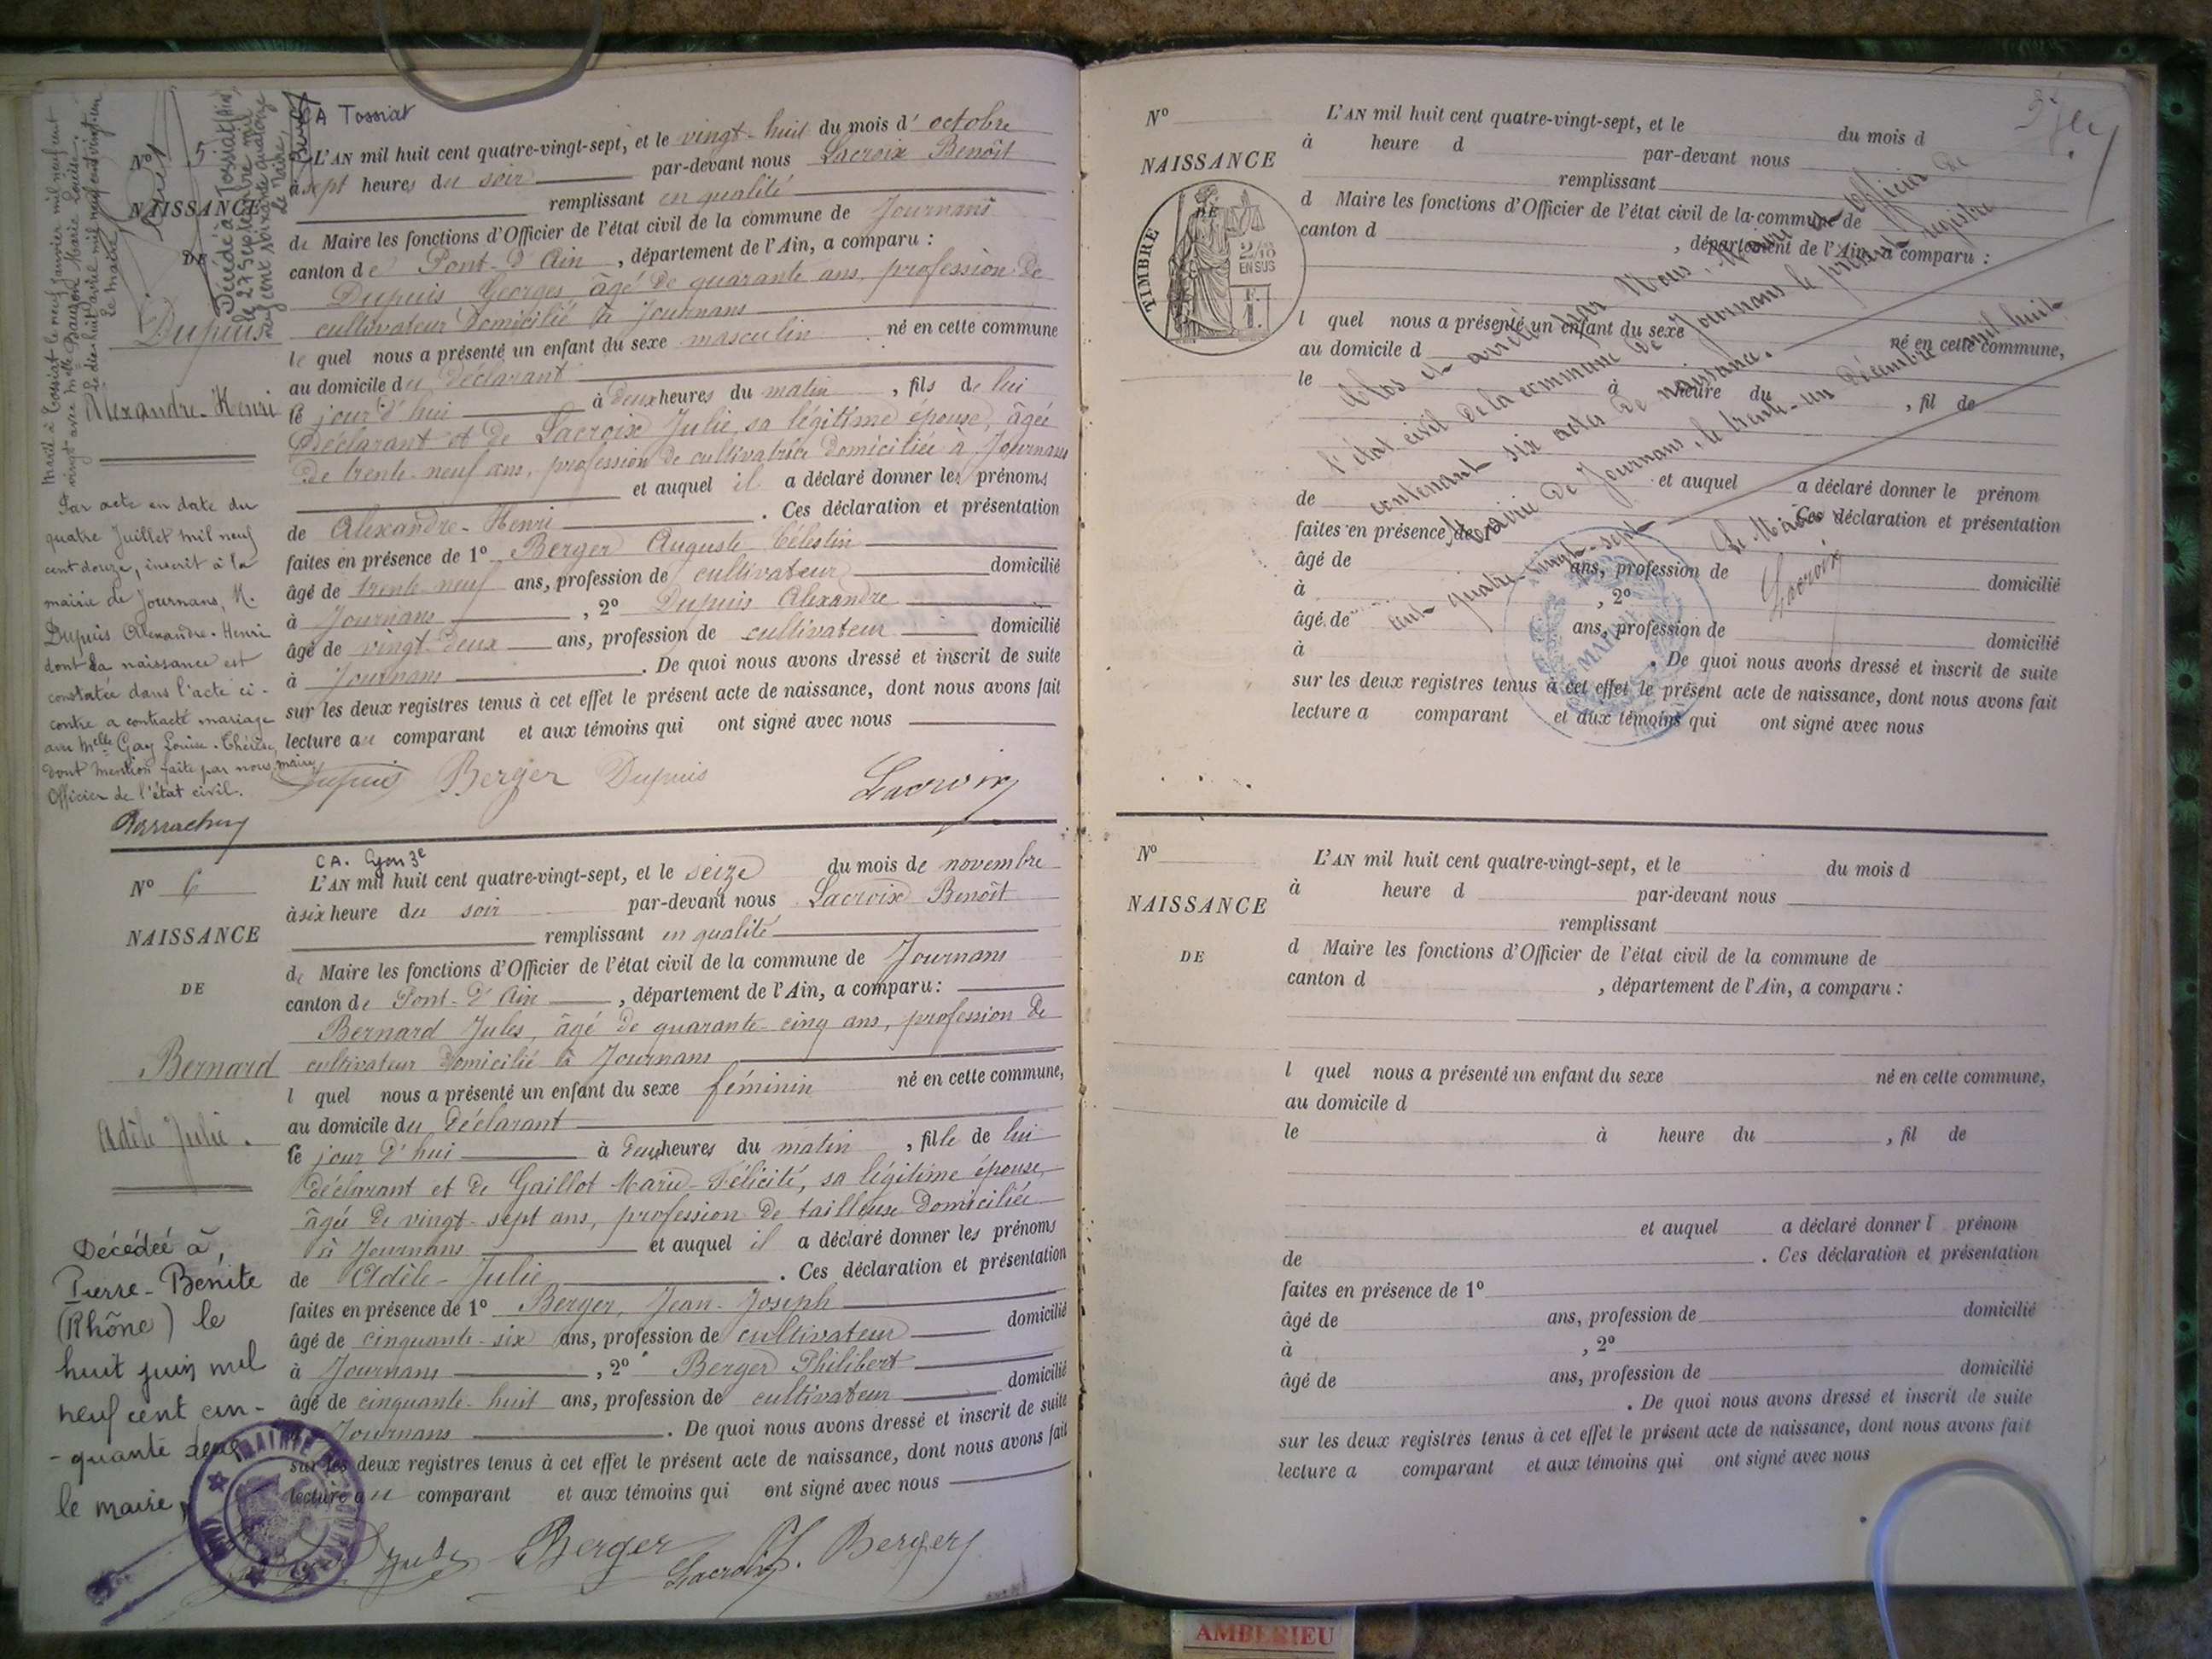 CA Tossiat
Nº 5
NAISSANCE
DE
Dupuis
Alexandre-Henri
Marié à Tossiat le neuf janvier mil neuf cent
vingt avec Melle Marie Louise.
Le maire
Décédé à Tossiat (Ain)
le 27 Septembre mil
neuf cent soixante quatorze
Le Maire,
Par acte en date du
quatre Juillet mil neuf
cent douze, inscrit à la
mairie de Journans, M.
Dupuis Alexandre-Henri
dont la naissance est
constatée dans l'acte ci-
contre a contracté mariage
avec Melle Gay Louise-Thérèse,
dont mention faite par nous, maire
Officier de l'état civil.
L'AN mil huit cent quatre-vingt-sept, et le vingt-huit du mois d'octobre
à sept heures du soir par-devant nous Lacroix Benoît
remplissant en qualité
de Maire les fonctions d'Officier de l'état civil de la commune de Journans
canton de Pont-d'Ain, département de l'Ain, a comparu :
Dupuis Georges âgé de quarante ans, profession de
cultivateur domicilié à Journans
le quel nous a présenté un enfant du sexe masculin né en cette commune
au domicile du déclarant
le jour d'hui à deux heures du matin, fils de lui
déclarant et de Lacroix Julie, sa légitime épouse, âgée
de trente-neuf ans, profession de cultivatrice domiciliée à Journans
et auquel il a déclaré donner les prénoms
de Alexandre-Henri. Ces déclaration et présentation
faites en présence de 1º Berger Auguste Célestin
âgé de trente neuf ans, profession de cultivateur domicilié
à Journans, 2º Dupuis Alexandre
âgé de vingt-deux ans, profession de cultivateur domicilié
à Journans. De quoi nous avons dressé et inscrit de suite
sur les deux registres tenus à cet effet le présent acte de naissance, dont nous avons fait
lecture au comparant et aux témoins qui ont signé avec nous
Dupuis Berger Dupuis Lacroix
CA. Lyon 3e
Nº 6
NAISSANCE
DE
Bernard
Adèle Julie.
Décédée à,
Pierre-Bénite
(Rhône) le
huit juin mil
neuf cent cin-
-quante deux
le maire,
L'AN mil huit cent quatre-vingt-sept, et le seize du mois de novembre
à six heure du soir par-devant nous Lacroix Benoît
remplissant en qualité
de Maire les fonctions d'Officier de l'état civil de la commune de Journans
canton de Pont-d'Ain, département de l'Ain, a comparu :
Bernard Jules, âgé de quarante-cinq ans, profession de
cultivateur domicilié à Journans
l quel nous a présenté un enfant du sexe féminin né en cette commune,
au domicile du déclarant
le jour d'hui à deux heures du matin, fille de lui
déclarant et de Gaillot Marie-Félicité, sa légitime épouse,
âgée de vingt-sept ans, profession de tailleuse domiciliée
à Journans et auquel il a déclaré donner les prénoms
de Adèle-Julie. Ces déclaration et présentation
faites en présence de 1º Berger, Jean-Joseph
âgé de cinquante-six ans, profession de cultivateur domicilié
à Journans, 2º Berger Philibert
âgé de cinquante-huit ans, profession de cultivateur domicilié
Journans. De quoi nous avons dressé et inscrit de suite
sur les deux registres tenus à cet effet le présent acte de naissance, dont nous avons fait
lecture au comparant et aux témoins qui ont signé avec nous
Berger Lacroix Berger
MAIRIE
Nº
NAISSANCE
DE
TIMBRE
2/10
EN SUS
L'AN mil huit cent quatre-vingt-sept, et le du mois d
à heure d par-devant nous
remplissant
d Maire les fonctions d'Officier de l'état civil de la commune de
canton d , département de l'Ain, a comparu :
l quel nous a présenté un enfant du sexe né en cette commune,
au domicile d
le à heure du , fil de
et auquel a déclaré donner le prénom
de . Ces déclaration et présentation
faites en présence de 1º
âgé de ans, profession de domicilié
à , 2º
âgé de ans, profession de domicilié
à . De quoi nous avons dressé et inscrit de suite
sur les deux registres tenus à cet effet le présent acte de naissance, dont nous avons fait
lecture a comparant et aux témoins qui ont signé avec nous
Clos et arrêté par Nous, Maire Officier de
l'état civil de la commune de Journans le présent registre
contenant six actes de naissance.
Mairie de Journans, le trente-un décembre mil huit
cent quatre-vingt-sept
Le Maire
Lacroix
MAIRIE
Nº
NAISSANCE
DE
L'AN mil huit cent quatre-vingt-sept, et le du mois d
à heure d par-devant nous
remplissant
d Maire les fonctions d'Officier de l'état civil de la commune de
canton d , département de l'Ain, a comparu :
l quel nous a présenté un enfant du sexe né en cette commune,
au domicile d
le à heure du , fil de
et auquel a déclaré donner l prénom
de . Ces déclaration et présentation
faites en présence de 1º
âgé de ans, profession de domicilié
à , 2º
âgé de ans, profession de domicilié
. De quoi nous avons dressé et inscrit de suite
sur les deux registres tenus à cet effet le présent acte de naissance, dont nous avons fait
lecture a comparant et aux témoins qui ont signé avec nous
AMBERIEU